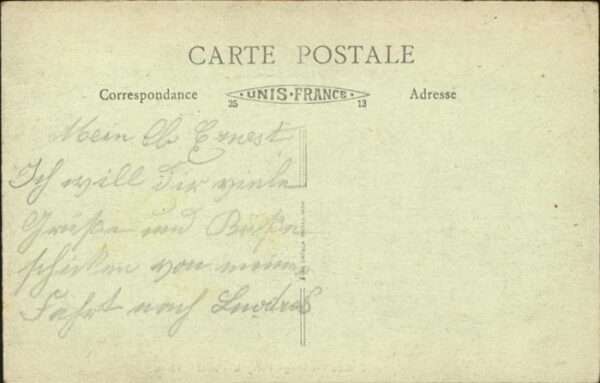 CARTE POSTALE
Correspondance
UNIS-FRANCE
Adresse
25
13
Mein lb Ernest
Ich will dir viele
Grüße und
schicken von meiner
Fahrt nach